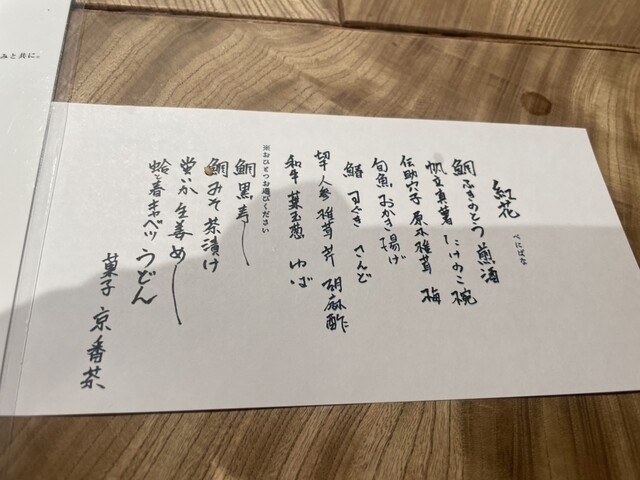 みと共に。
紅花
べにばな
鯛 ふきのとう 煎酒
帆立真薯 たけのこ 椀
伝助穴子 原木椎茸 梅
旬魚 おかき揚げ
鰆 すぐき さんど
切干人参 椎茸 芹 胡麻酢
和牛 葉玉葱 ゆば
※おひとつお選びください
鯛 黒寿し
鯛みそ 茶漬け
蛍いか 生姜 めし
蛤と春キャベツ うどん
菓子 京番茶